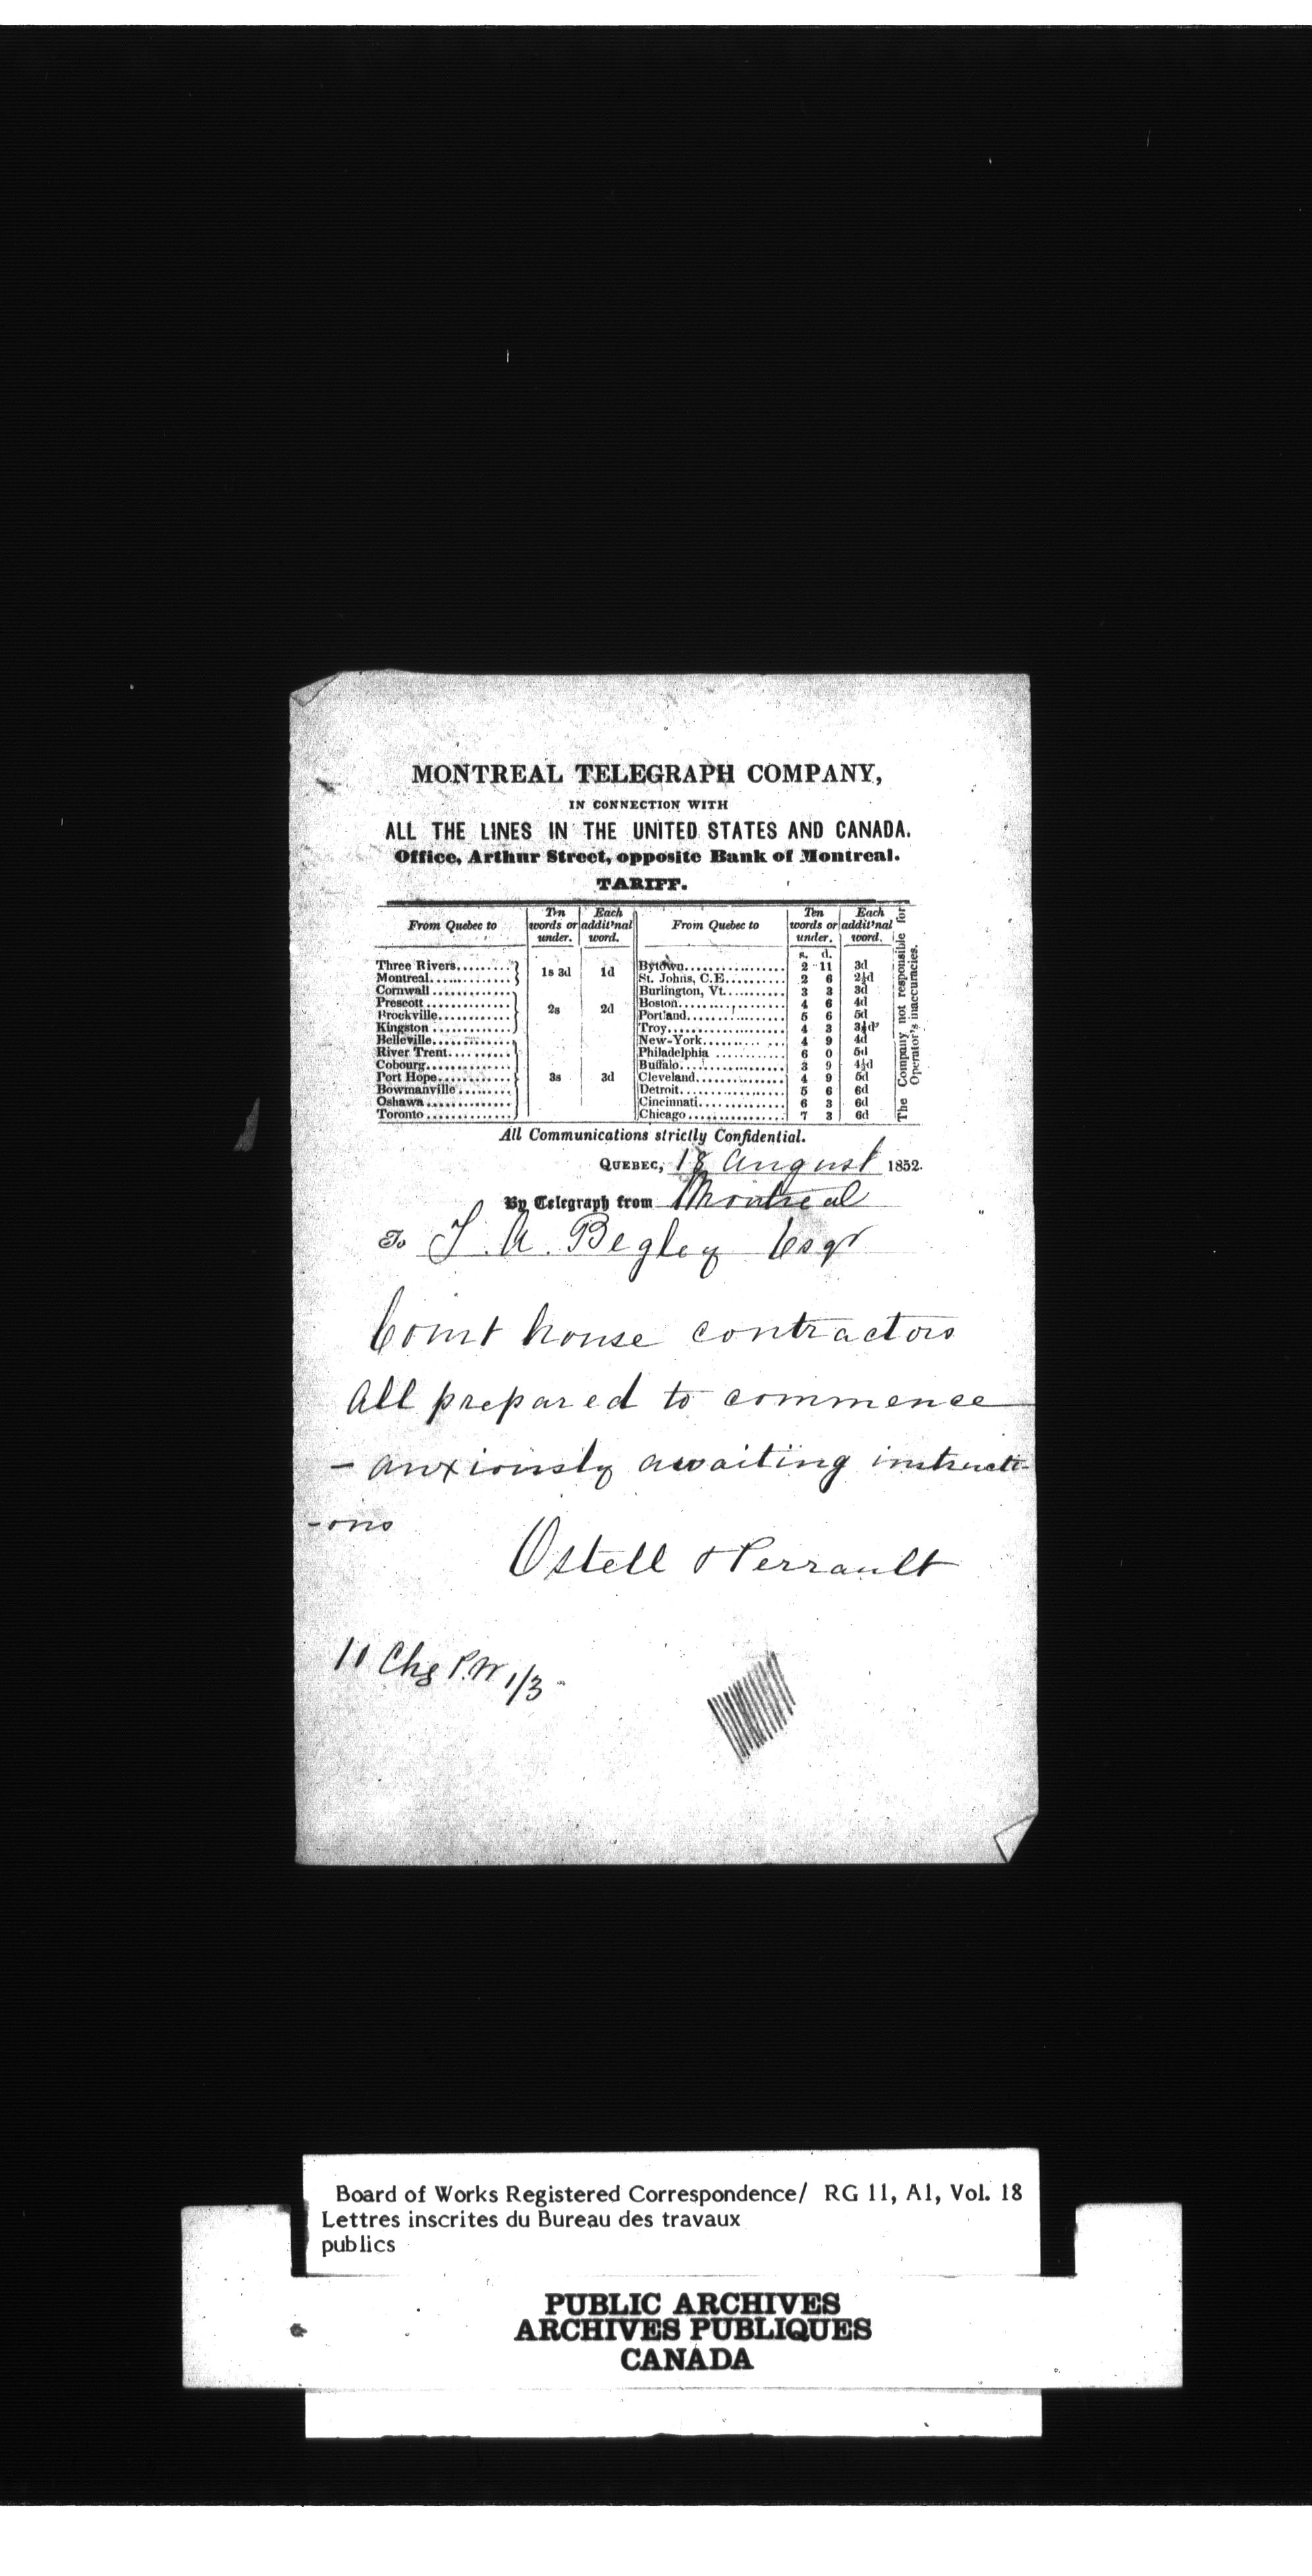 MONTREAL TELEGRAPH COMPANY,
IN CONNECTION WITH
ALL THE LINES IN THE UNITED STATES AND CANADA.
Office, Arthur Street, opposite Bank of Montreal.
TARIFF.
From Quebec to | Ten words or under. | Each addit'nal word. | From Quebec to | Ten words or under. | Each addit'nal word.
s. d.
Three Rivers......... 1s 3d 1d Bytown................ 2 11 3d
Montreal............ St. Johns, C.E.......... 2 6 2½d
Cornwall ............ Burlington, Vt.......... 3 3 3d
Prescott ............ 2s 2d Boston................ 4 6 4d
Brockville............ Portland................ 5 6 5d
Kingston ............ Troy.................. 4 3 3½d
Belleville............ New-York............ 4 9 4d
River Trent.......... Philadelphia .......... 6 0 5d
Cobourg............ Buffalo................ 3 9 4½d
Port Hope............ 3s 3d Cleveland.............. 4 9 5d
Bowmanville......... Detroit................ 5 6 6d
Oshawa............ Cincinnati............ 6 3 6d
Toronto............ Chicago................ 7 3 6d
The Company not responsible for
Operator's inaccuracies.
All Communications strictly Confidential.
QUEBEC, 18 August 1852.
By Telegraph from Montreal
To T. A. Begley Esqr
Court house contractors
all prepared to commence
- anxiously awaiting instructi-
-ons
Ostell & Perrault
11 Chg P.W 1/3
Board of Works Registered Correspondence/ RG 11, A1, Vol. 18
Lettres inscrites du Bureau des travaux
publics
PUBLIC ARCHIVES
ARCHIVES PUBLIQUES
CANADA